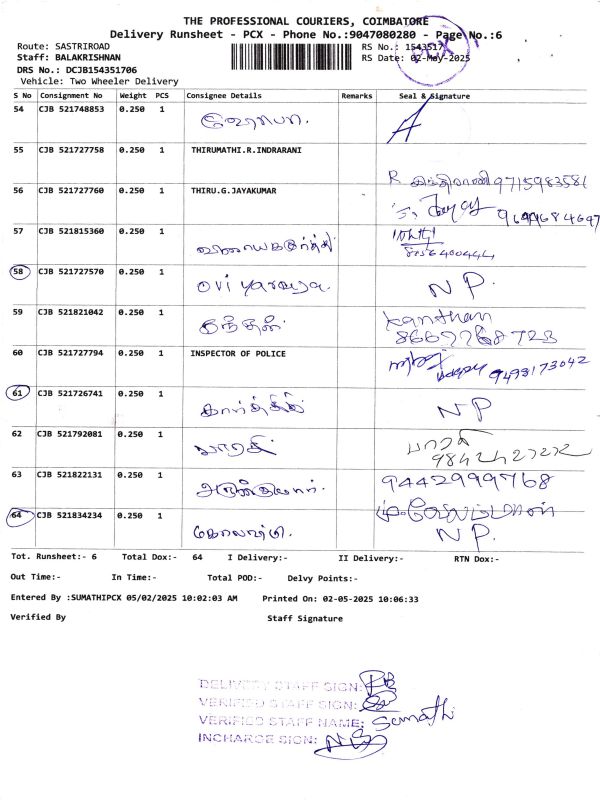 THE PROFESSIONAL COURIERS, COIMBATORE
Delivery Runsheet - PCX - Phone No.:9047080280 - Page No.:6
Route: SASTRIROAD RS No.: 1543517
Staff: BALAKRISHNAN RS Date: 02-May-2025
PCX
DRS No.: DCJB154351706
Vehicle: Two Wheeler Delivery
S No Consignment No Weight PCS Consignee Details Remarks Seal & Signature
54 CJB 521748853 0.250 1
55 CJB 521727758 0.250 1 THIRUMATHI.R.INDRARANI
R இந்திராணி 9715983581
56 CJB 521727760 0.250 1 THIRU.G.JAYAKUMAR
9699684697
57 CJB 521815360 0.250 1
விநாயகமூர்த்தி
58 CJB 521727570 0.250 1
N P.
59 CJB 521821042 0.250 1
கந்தன் Kanthan
8667768723
60 CJB 521727794 0.250 1 INSPECTOR OF POLICE
9498173042
61 CJB 521726741 0.250 1
கார்த்திக் N P
62 CJB 521792081 0.250 1
பாரதி பாரதி
63 CJB 521822131 0.250 1
9442999768
64 CJB 521834234 0.250 1
கோமதி. N P.
Tot. Runsheet:- 6 Total Dox:- 64 I Delivery:- II Delivery:- RTN Dox:-
Out Time:- In Time:- Total POD:- Delvy Points:-
Entered By :SUMATHIPCX 05/02/2025 10:02:03 AM Printed On: 02-05-2025 10:06:33
Verified By Staff Signature
DELIVERY STAFF SIGN:
VERIFIED STAFF SIGN:
VERIFIED STAFF NAME: Sumathi
INCHARGE SIGN: